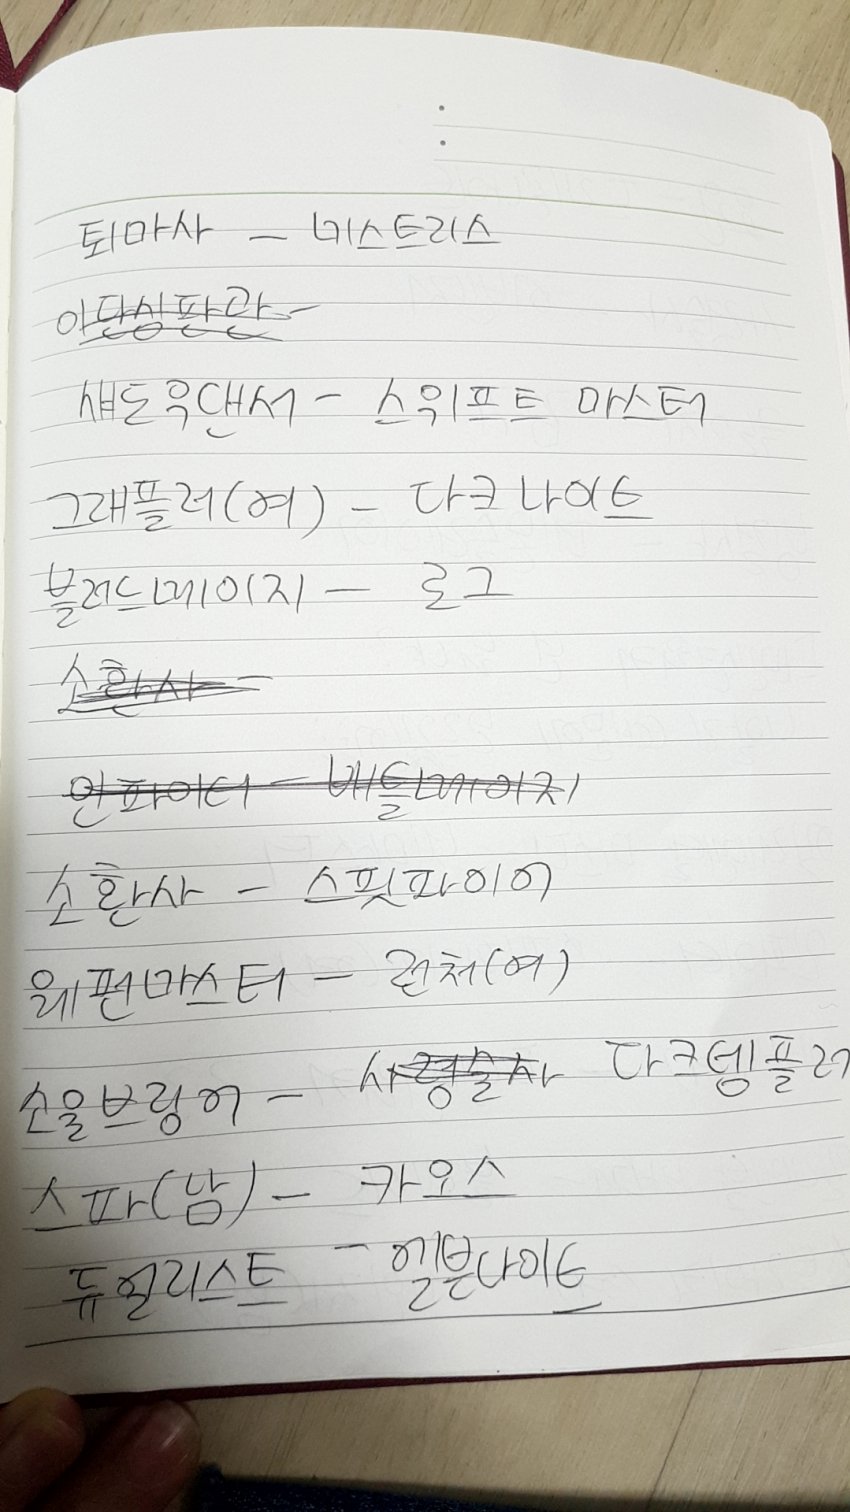 퇴마사 - 미스트리스
이단심판관 -
섀도우댄서 - 스위프트 마스터
그래플러(여) - 다크나이트
블러드메이지 - 로그
소환사 -
인파이터 - 배틀메이지
소환사 - 스핏파이어
웨펀마스터 - 런처(여)
소울브링어 - 사령술사 다크템플러
스파(남) - 카오스
듀얼리스트 - 엘븐나이트